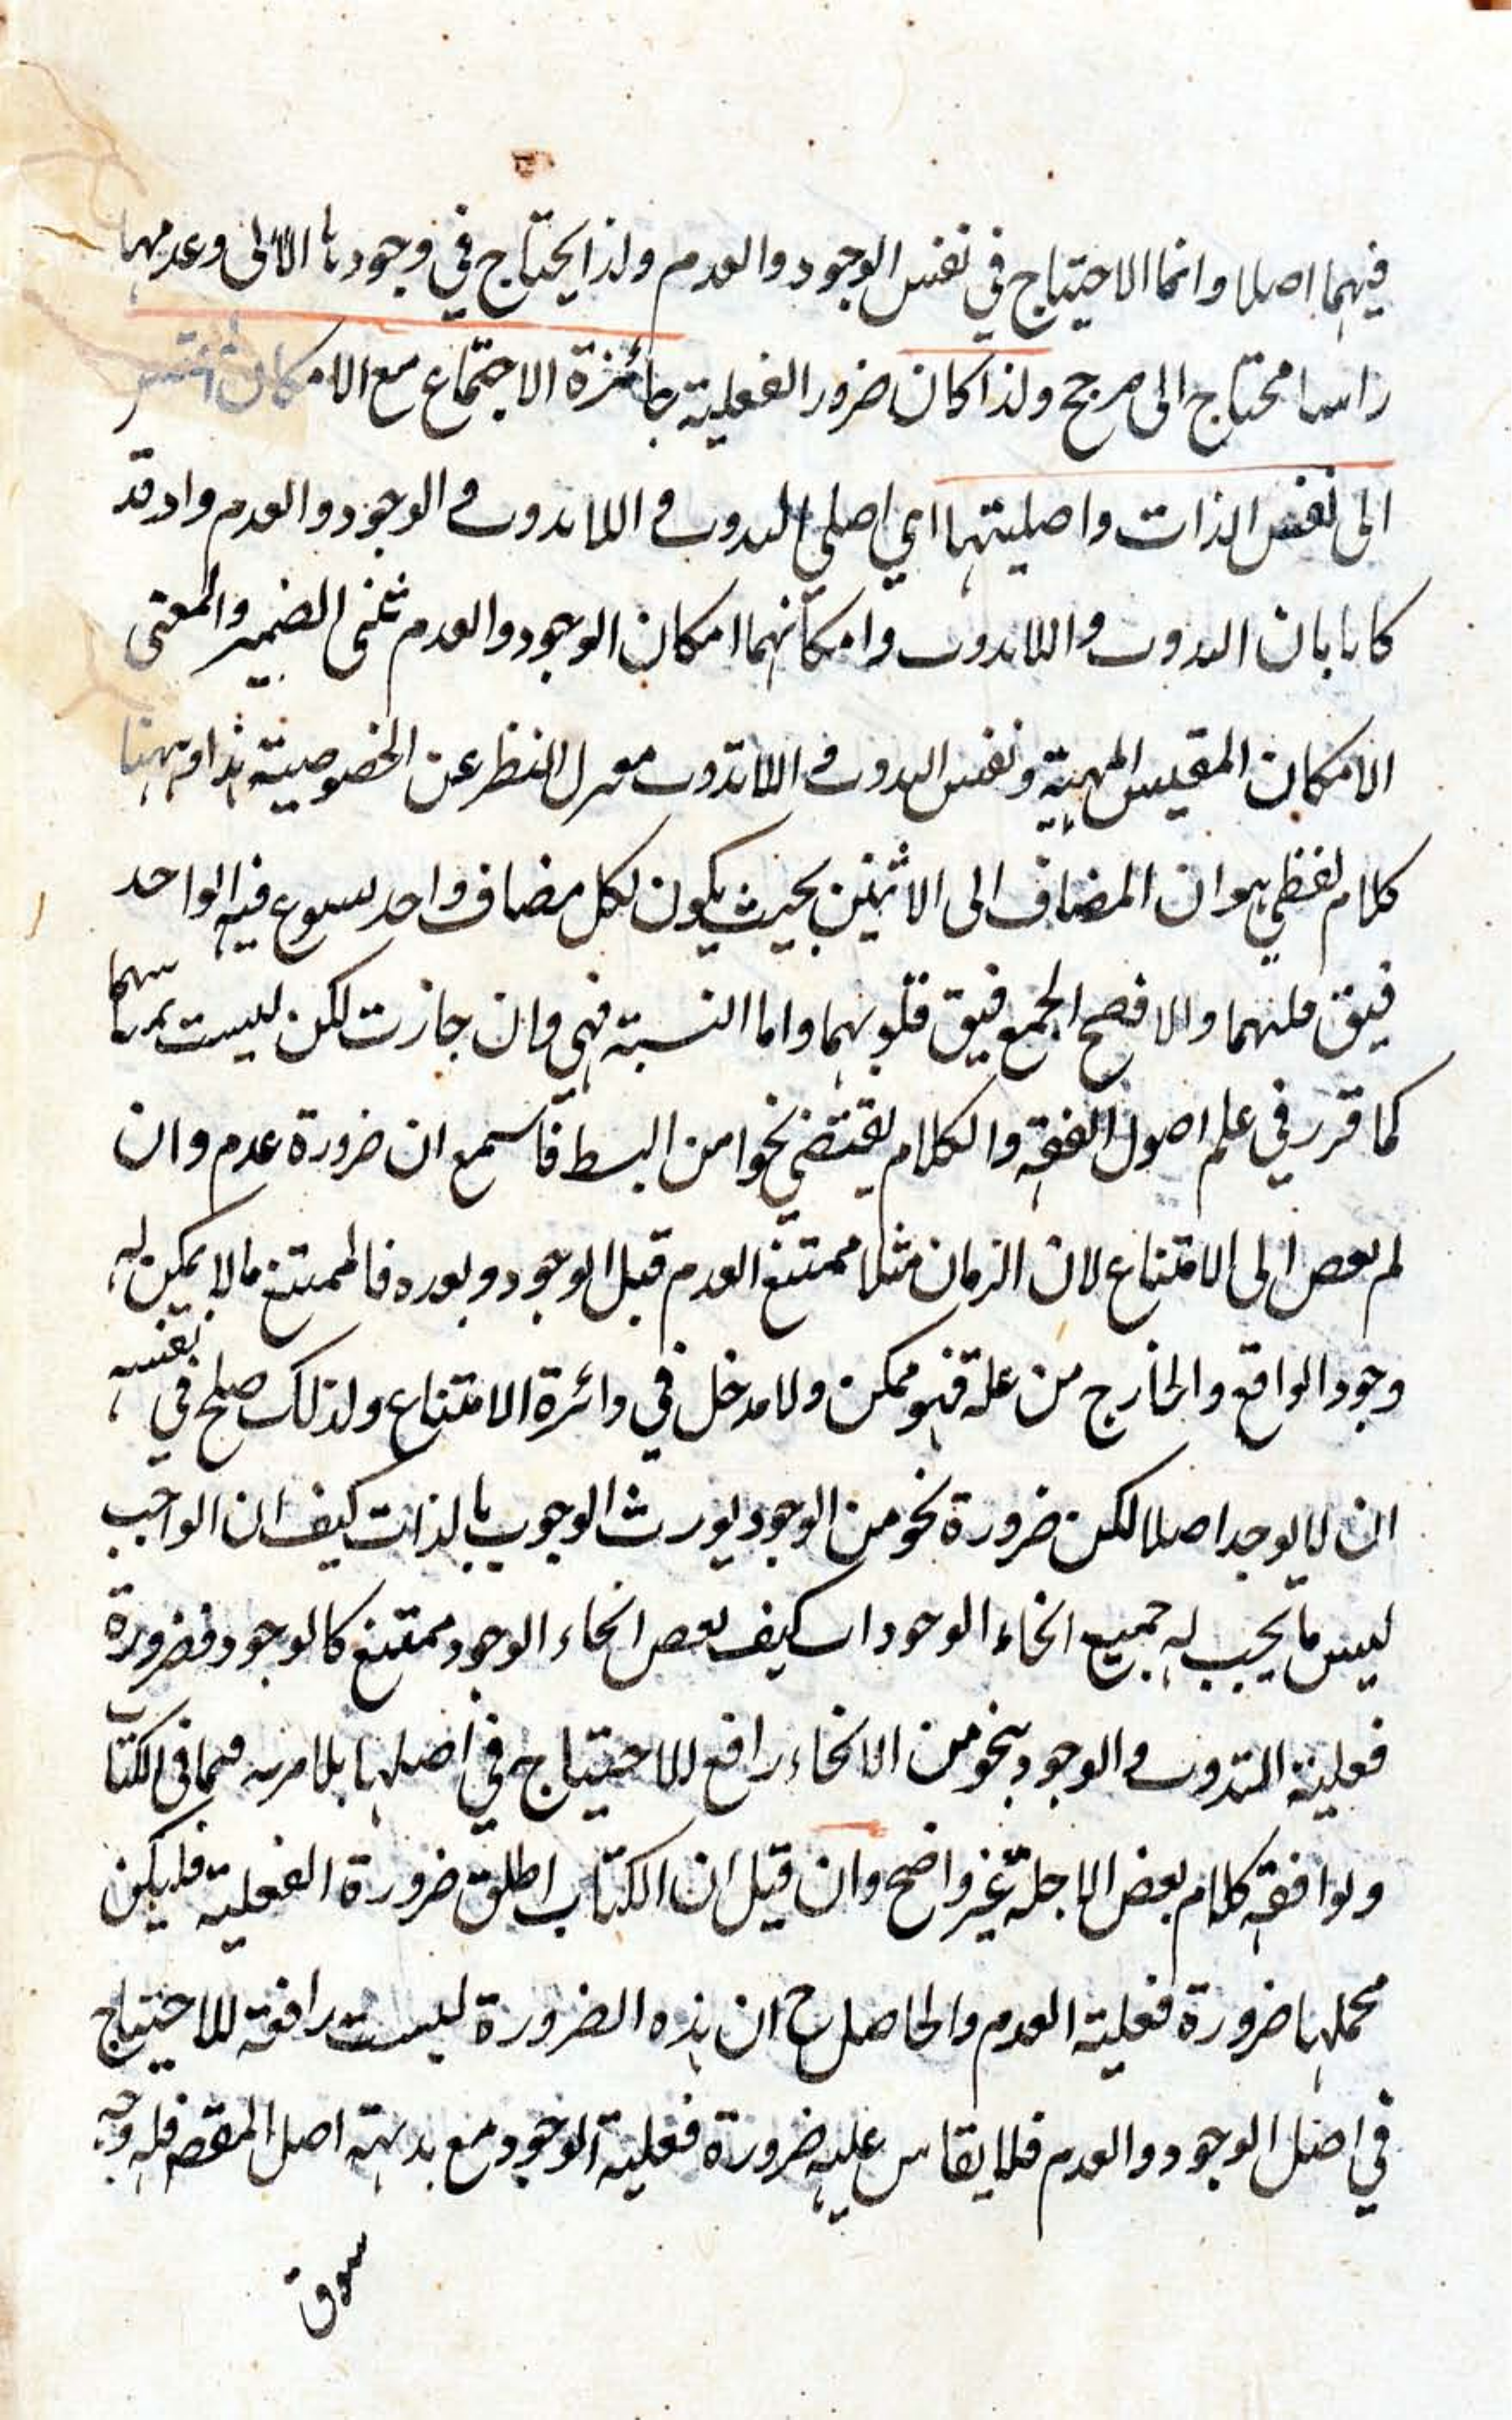 فيهما اصلا وانما الاحتياج في نفس الوجود والعدم ولذا يحتاج في وجودها الاتى وعدمها
راسا محتاج الى مرجح ولذا كان ضرور الفعلية جائزة الاجتماع مع الامكان
الى نفس الذات واصليتهما اي اصلي الثبوت و اللاثبوت و الوجود والعدم واذ قد
كانا بابان الثبوت و اللاثبوت وامكانهما امكان الوجود والعدم ثنى الضمير والمعنى
الامكان المقيس المهية ونفس الثبوت و اللاثبوت النظر عن الخصوصية هذا ثم ههنا
كلام لفظي هو ان المضاف الى الاثنين بحيث يكون لكل مضاف واحد يسوغ فيه الواحد
فيق قلبهما والافصح الجمع فيق قلوبهما واما النسبة فهي وان جازت لكن ليست
كما قرر في علم اصول الفقه والكلام يقتضي نحوا من البسط فاسمع ان ضرورة عدم وان
لم يفض الى الامتناع لان الزمان مثلا ممتنع العدم قبل الوجود وبعده فالممتنع ما لا يمكن له
وجود الواقع والخارج من علة فهو ممكن ولا مدخل في دائرة الامتناع ولذلك صلح في نفسه
ان لا يوجد اصلا لكن ضرورة نحو من الوجود يورث الوجوب بالذات كيف ان الواجب
ليس ما يجب له جميع انحاء الوجودات كيف بعض انحاء الوجود ممتنع كالوجود فضرورة
فعلية الثبوت و الوجود بنحو من الانحاء رافع للاحتياج في اصلها بلا مرية فما فى الكتاب
ويوافقه كلام بعض الاجلة غير واضح وان قيل ان الكتاب اطلق ضرورة الفعلية فليكن
محملها ضرورة فعلية العدم والحاصل ح ان هذه الضرورة ليست رافعة للاحتياج
في اصل الوجود والعدم فلا يقاس عليه ضرورة فعلية الوجود مع بدهته اصل المقصد فله وجه
سوق